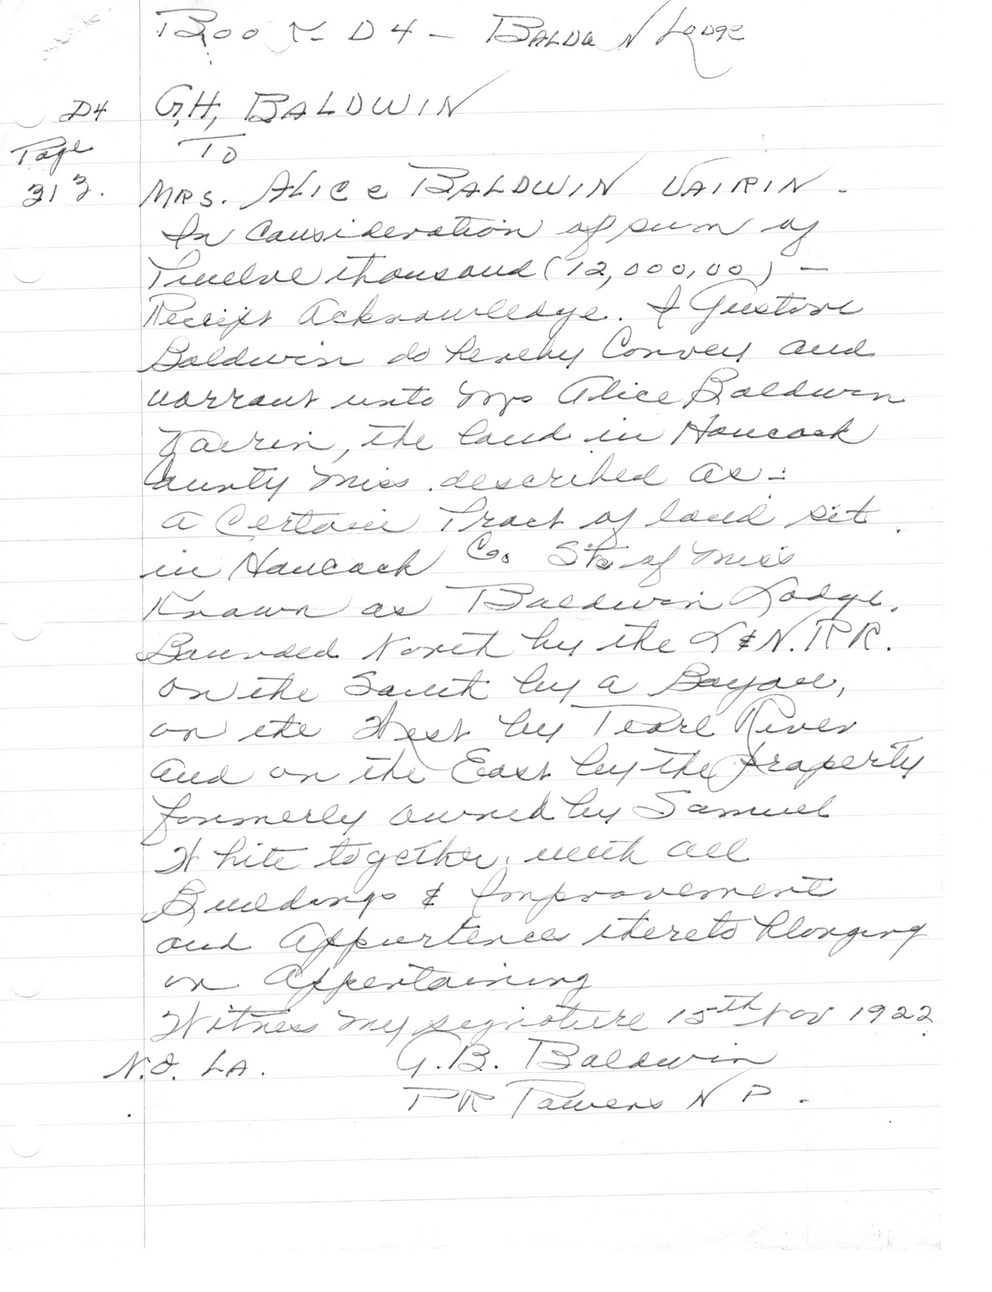 Book D4 - Baldwin Lodge
D4 G.H. BALDWIN
Page TO
313. MRS. ALICE BALDWIN VAIRIN -
In Consideration of sum of
Twelve thousand (12,000,00) -
Receipt Acknowledge. I Gustove
Baldwin do hereby Convey and
warrant unto Mrs Alice Baldwin
Vairin, the land in Hancock
County Miss. described as -:
a Certain Tract of land sit.
in Hancock Co. Sta of Miss
Known as Baldwin Lodge.
Bounded North by the L & N.RR.
on the South by a Bayou,
on the West by Pearl River
and on the East by the property
formerly owned by Samuel
White together. with all
Buildings & Improvement
and Appurtences thereto blonging
or Appertaining
Witness my signature 15th Nov 1922
N.O. LA. G.B. Baldwin
Powers N P.